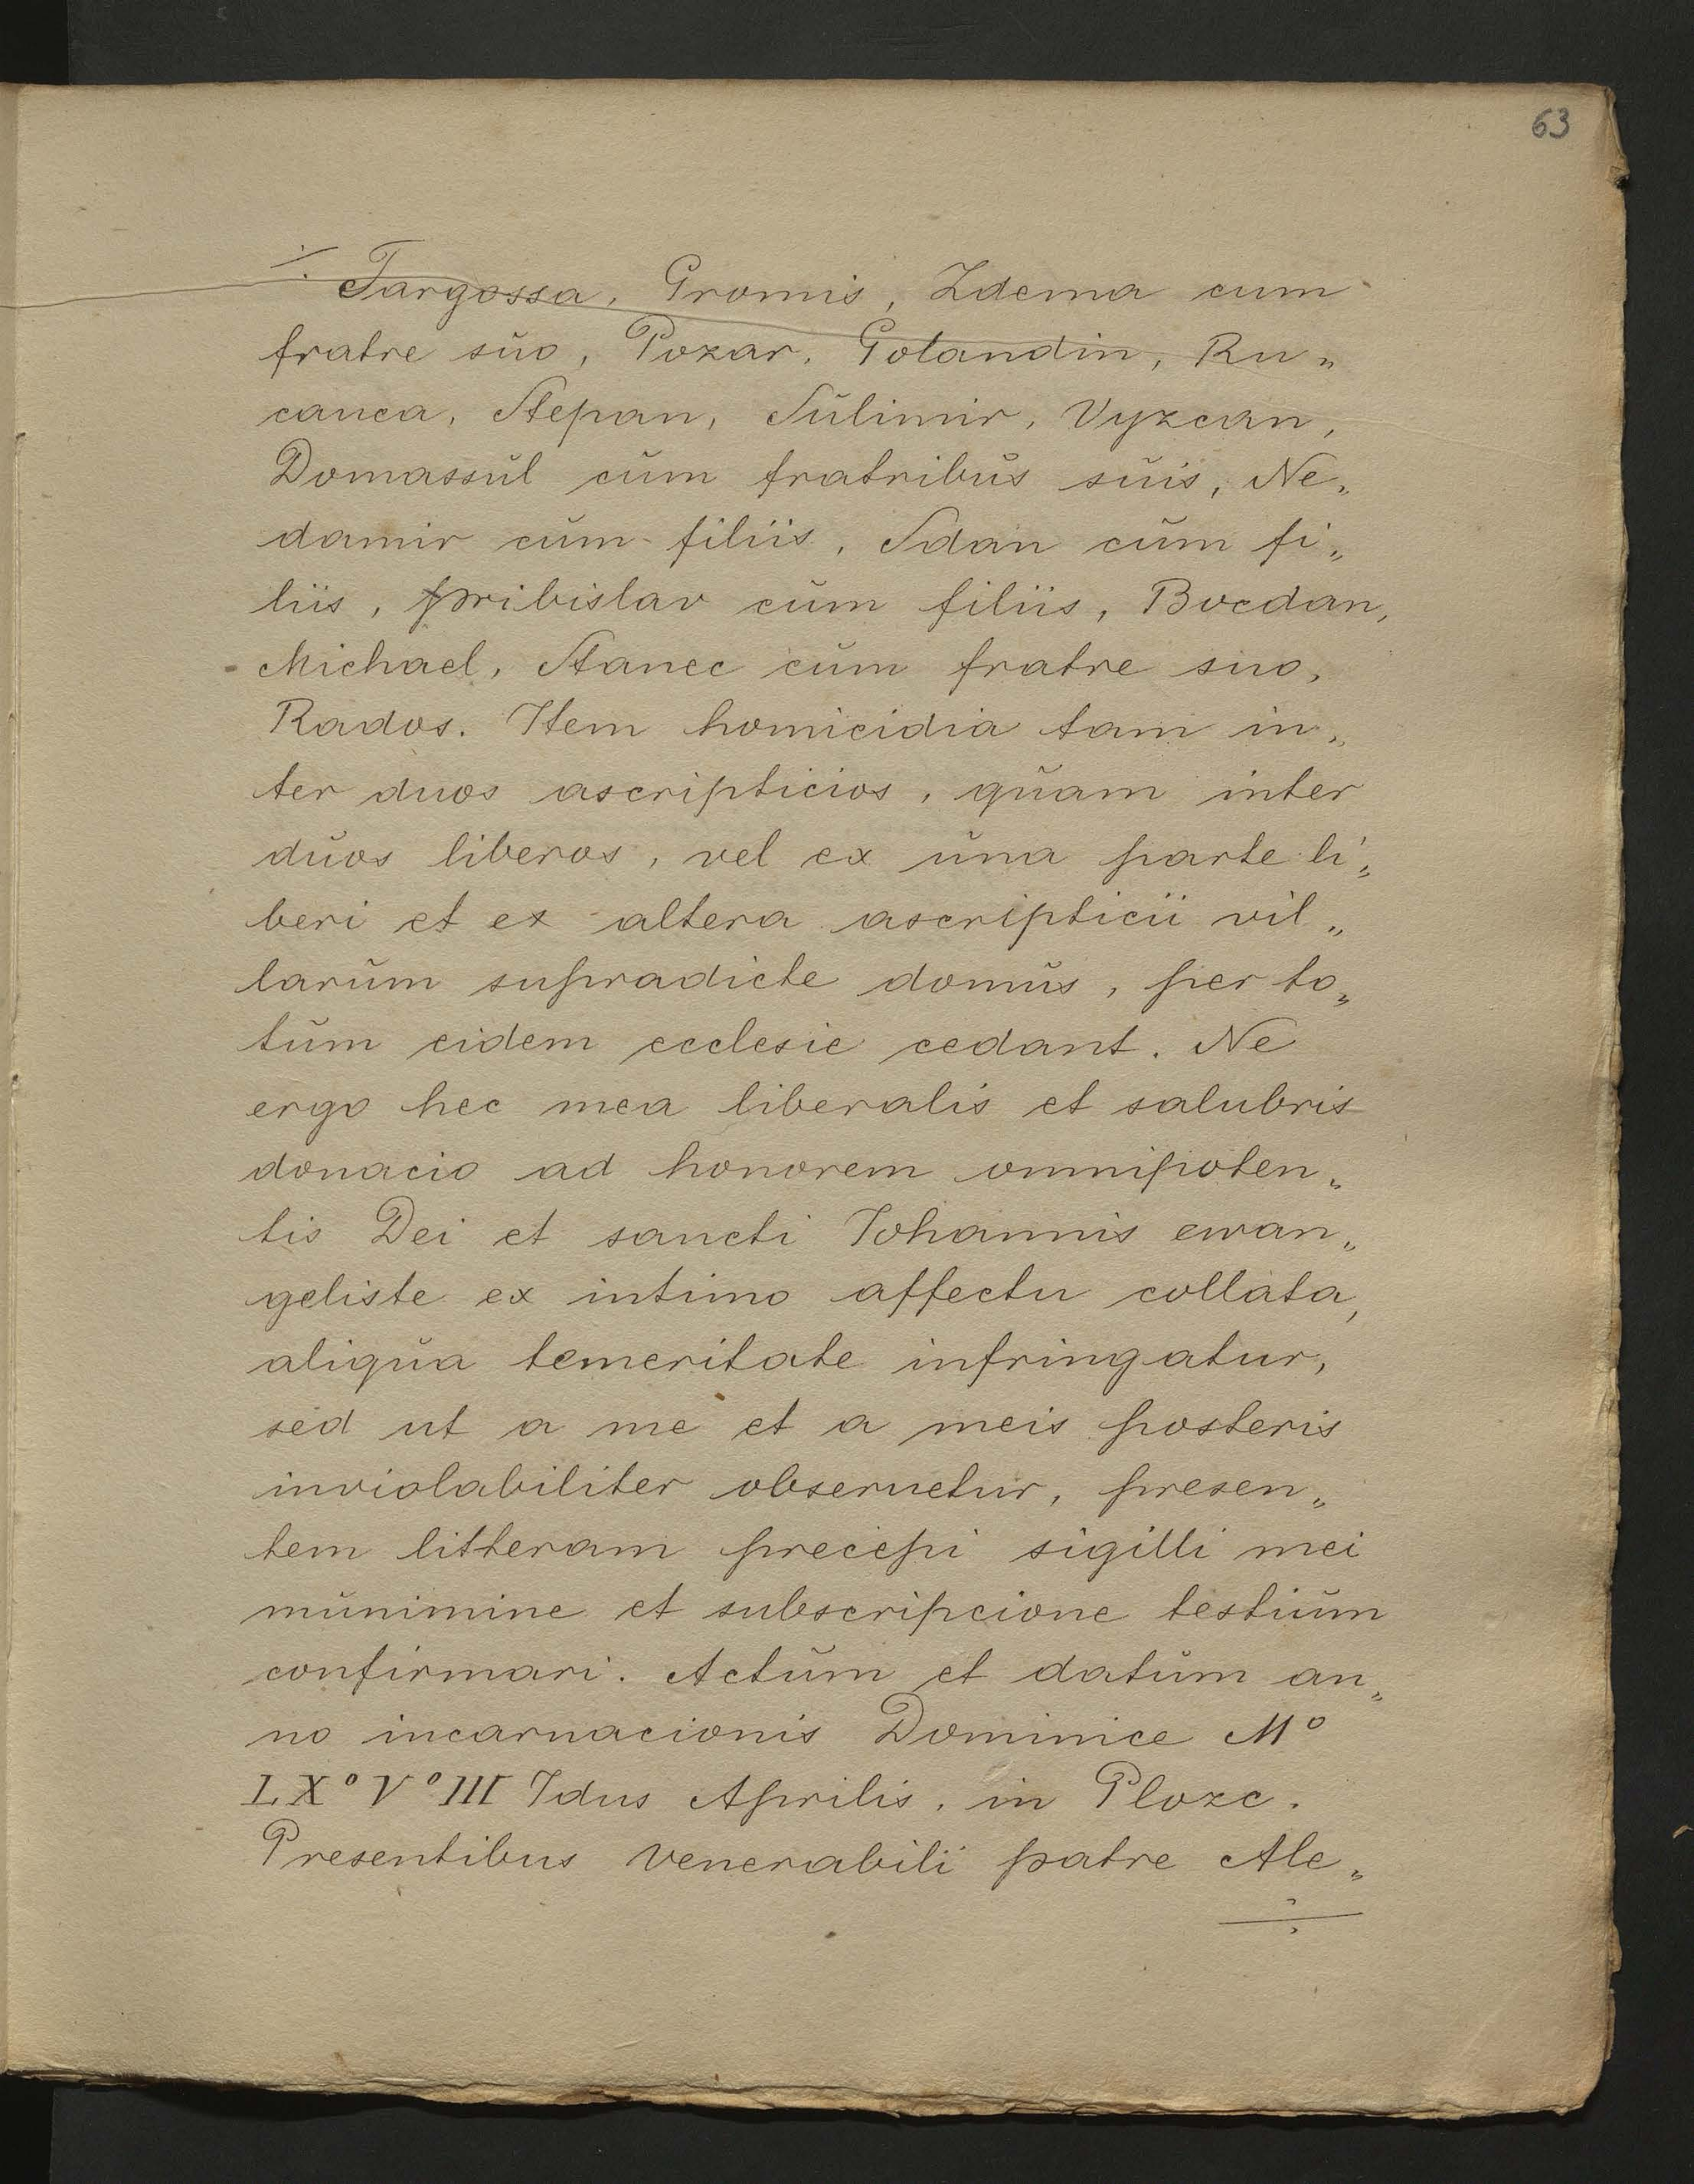 63
÷ Targossa, Gromis, Zdema cum
fratre sŭo, Pozar, Golandin, Ru„
canca, Stepan, Sŭlimir, Vyzcan,
Domassŭl cŭm fratribŭs sŭis, Ne„
damir cŭm filiis, Sdan cŭm fi„
liis, pribislav cŭm filiis, Bocdan,
Michael, Stanec cŭm fratre suo,
Rados. Item homicidia tam in„
ter duos ascripticios, qŭam inter
dŭos liberos, vel ex ŭna parte li„
beri et ex altera ascripticii vil„
larŭm supradicte domŭs, per to„
tŭm eidem ecclesie cedant. Ne
ergo hec mea liberalis et salubris
donacio ad honorem omnipoten„
tis Dei et sancti Iohannis ewan„
geliste ex intimo affectu collata,
aliqŭa temeritate infringatur,
sed ut a me et a meis posteris
inviolabiliter obseruetur, presen„
tem litteram precepi sigilli mei
mŭnimine et subscripcione testiŭm
confirmari. Actŭm et datŭm an„
no incarnacionis Dominice Mº
LXº Vº III Idus Aprilis, in Plozc.
Presentibus venerabili patre Ale„
÷